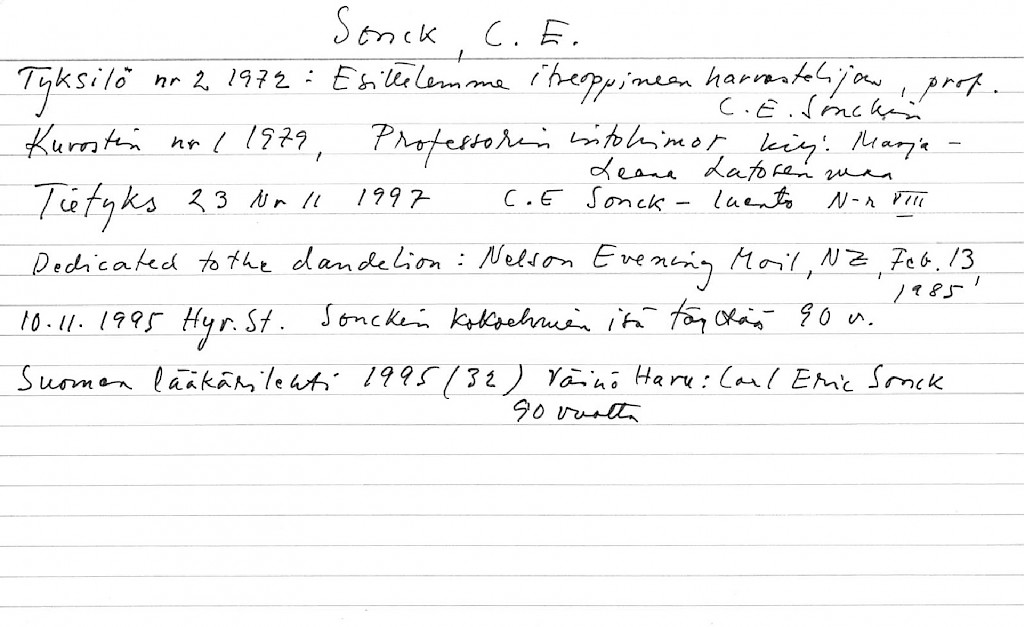 Sonck, C. E.
Tyksilö nr 2 1972 : Esittelemme itseoppineen harrastelijan, prof.
C. E. Sonckin
Kurostin nr 1 1979, Professorin intohimot kirj. Marja-
Leena
Tietyks 23 Nr 11 1997 C. E Sonck - luento N-r VIII
Dedicated to the dandelion : Nelson Evening Mail, NZ, Feb. 13,
1985
10.11. 1995 Hyr. St. Sonckin kokoelmien isä täyttää 90 v.
Suomen lääkärilehti 1995 (32) Väinö Havu : Carl Eric Sonck
90 vuotta